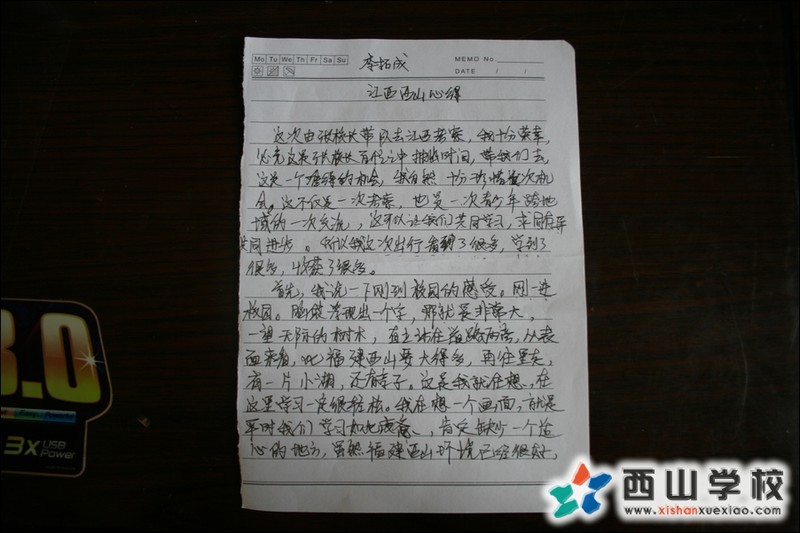 Mo Tu We Th Fr Sa Su
MEMO No.
DATE / /
李拓成
江西西山心得
这次由张校长带队去江西考察，我十分荣幸，
必竟这是张校长百忙之中抽出时间，带我们去，
这是一个难得的机会，我自然十分珍惜此次机
会。这不仅是一次考察，也是一次青少年跨地
域的一次交流，这可以让我们共同学习，求同存异
共同进步。所以我这次出行看到了很多，学到了
很多，收获了很多。
首先，我说一下刚到校园的感受。刚一进
校园。脑袋浮现出一个字，那就是非常大，
一望无际的树木，直立站在道路两旁，从表
面来看，比福建西山要大得多，再往里走，
有一片小湖，还有亭子。这是我就在想，在
这里学习一定很轻松。我在想一个画面，就是
平时我们学习如此疲惫，肯定缺少一个造
心的地方，虽然福建西山环境已经很好，
3.0
3X USB
Power
西山学校
www.xishanxuexiao.com